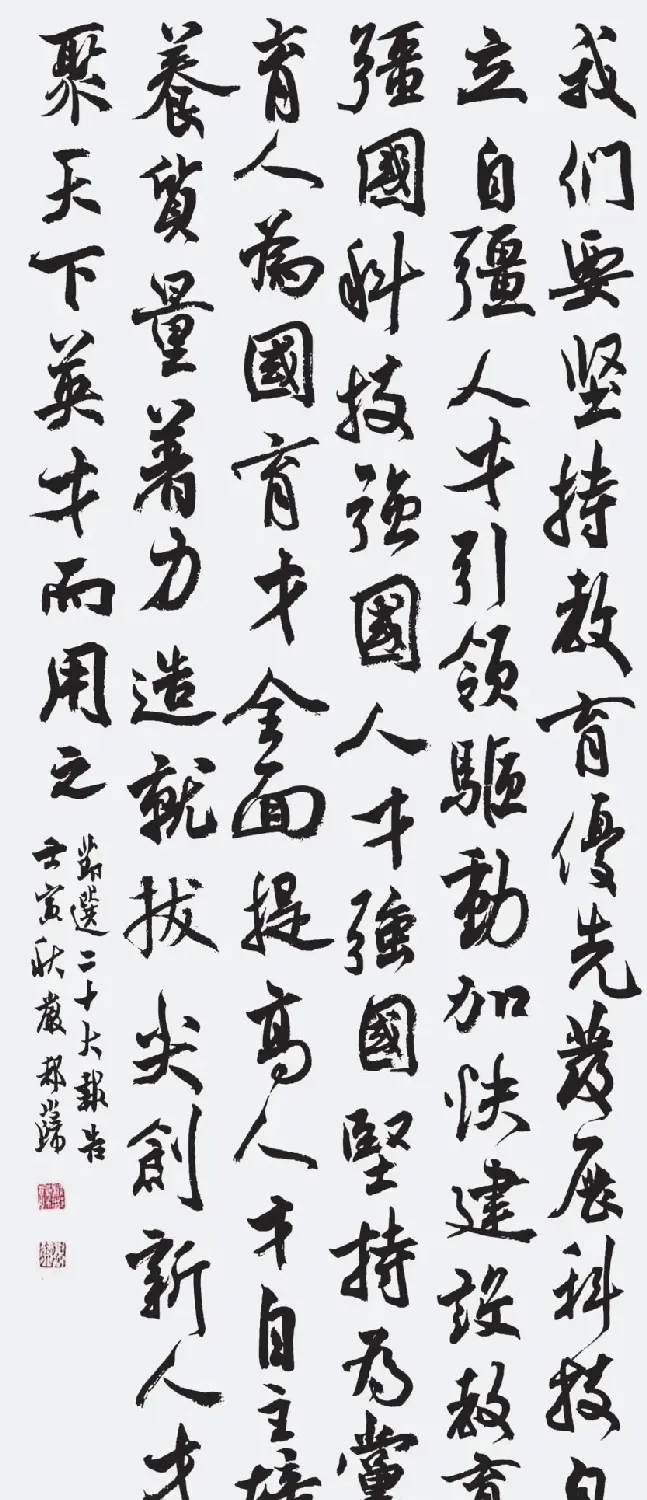 我们要坚持教育優先發展科技自
立自彊人才引領驅動加快建設教育
彊國科技強國人才強國堅持为黨
育人為國育才全面提高人才自主培
養質量著力造就拔尖創新人才
聚天下英才而用之
節選二十大報告
壬寅秋嚴